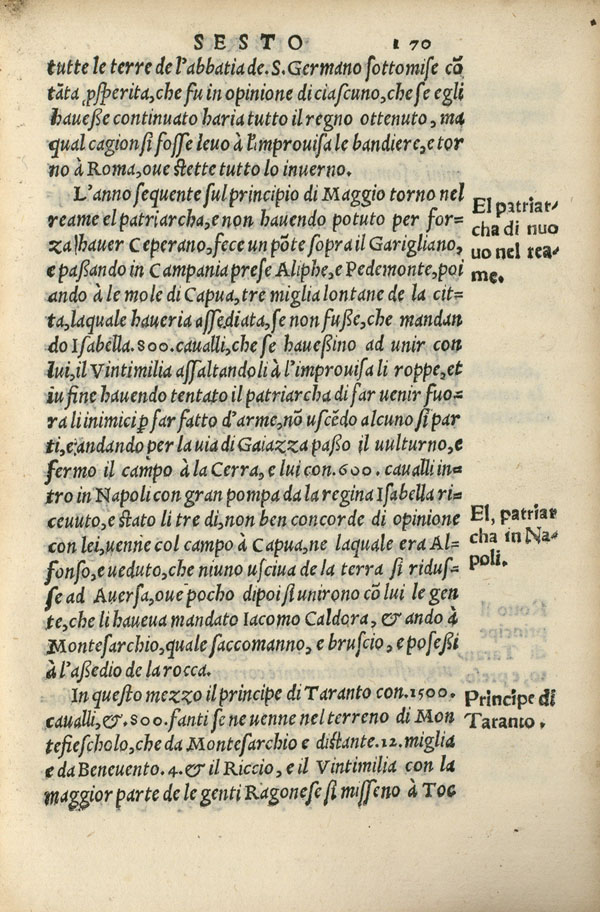 SESTO 170
tutte le terre de l'abbatia de.S.Germano sottomise cõ
tãta ꝓsperita,che fu in opinione di ciascuno,che se egli
haueße continuato haria tutto il regno ottenuto, ma
qual cagion si fosse leuo à l'improuisa le bandiere,e tor
no à Roma,oue stette tutto lo inuerno.
L'anno sequente sul principio di Maggio torno nel
reame el patriarcha,e non hauendo potuto per for=
za hauer Ceperano,fece un põte sopra il Garigliano,
e paßando in Campania prese Aliphe,e Pedemonte,poi
ando à le mole di Capua,tre miglia lontane de la cit=
ta,laquale haueria assediata,se non fuße,che mandan
do Isabella.800.caualli,che se haueßino ad unir con
lui,il Vintimilia assaltandoli à l'improuisa li roppe,et
iu fine hauendo tentato il patriarcha di far uenir fuo=
ra li inimici ꝑ far fatto d'arme,nõ uscẽdo alcuno si par
ti,e andando per la uia di Gaiazza paßo il uulturno,e
fermo il campo à la Cerra,e lui con.600.caualli in=
tro in Napoli con gran pompa da la regina Isabella ri=
ceuuto,e stato li tre di,non ben concorde di opinione
con lei,uenne col campo à Capua,ne laquale era Al=
fonso,e ueduto,che niuno usciua de la terra si ridus=
se ad Auersa,oue pocho dipoi si unirono cõ lui le gen
te,che li haueua mandato Iacomo Caldora, & ando à
Montesarchio,quale saccomanno,e bruscio,e poseßi
à l'aßedio de la rocca.
In questo mezzo il principe di Taranto con.1500.
caualli,&.800.fanti se ne uenne nel terreno di Mon
tefiescholo,che da Montesarchio e distante.12.miglia
e da Beneuento.4.& il Riccio, e il Vintimilia con la
maggior parte de le genti Ragonese si misseno à Toc
El patriar-
cha di nuo
uo nel rea-
me.
El, patriar
cha in Na-
poli.
Principe di
Taranto.